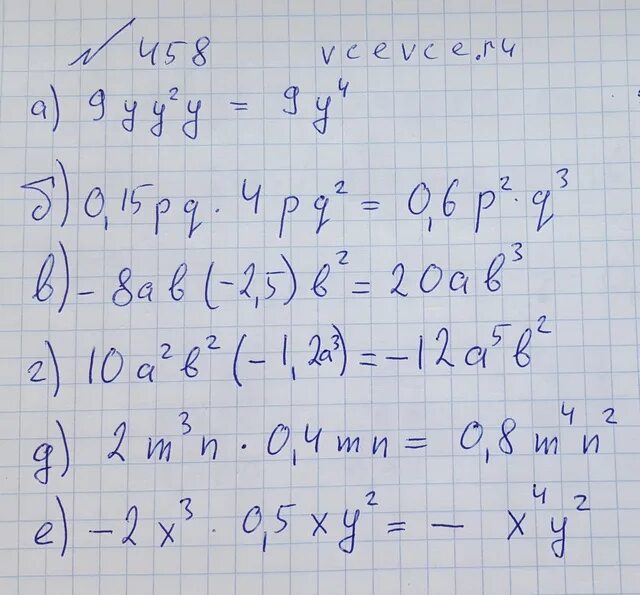 № 458 vcevce.ru
а) 9yy²y = 9y⁴
б) 0,15pq · 4pq² = 0,6p² · q³
в) -8ab(-2,5)b² = 20ab³
г) 10a²b²(-1,2a³) = -12a⁵b²
д) 2m³n · 0,4mn = 0,8m⁴n²
е) -2x³ · 0,5xy² = - x⁴y²